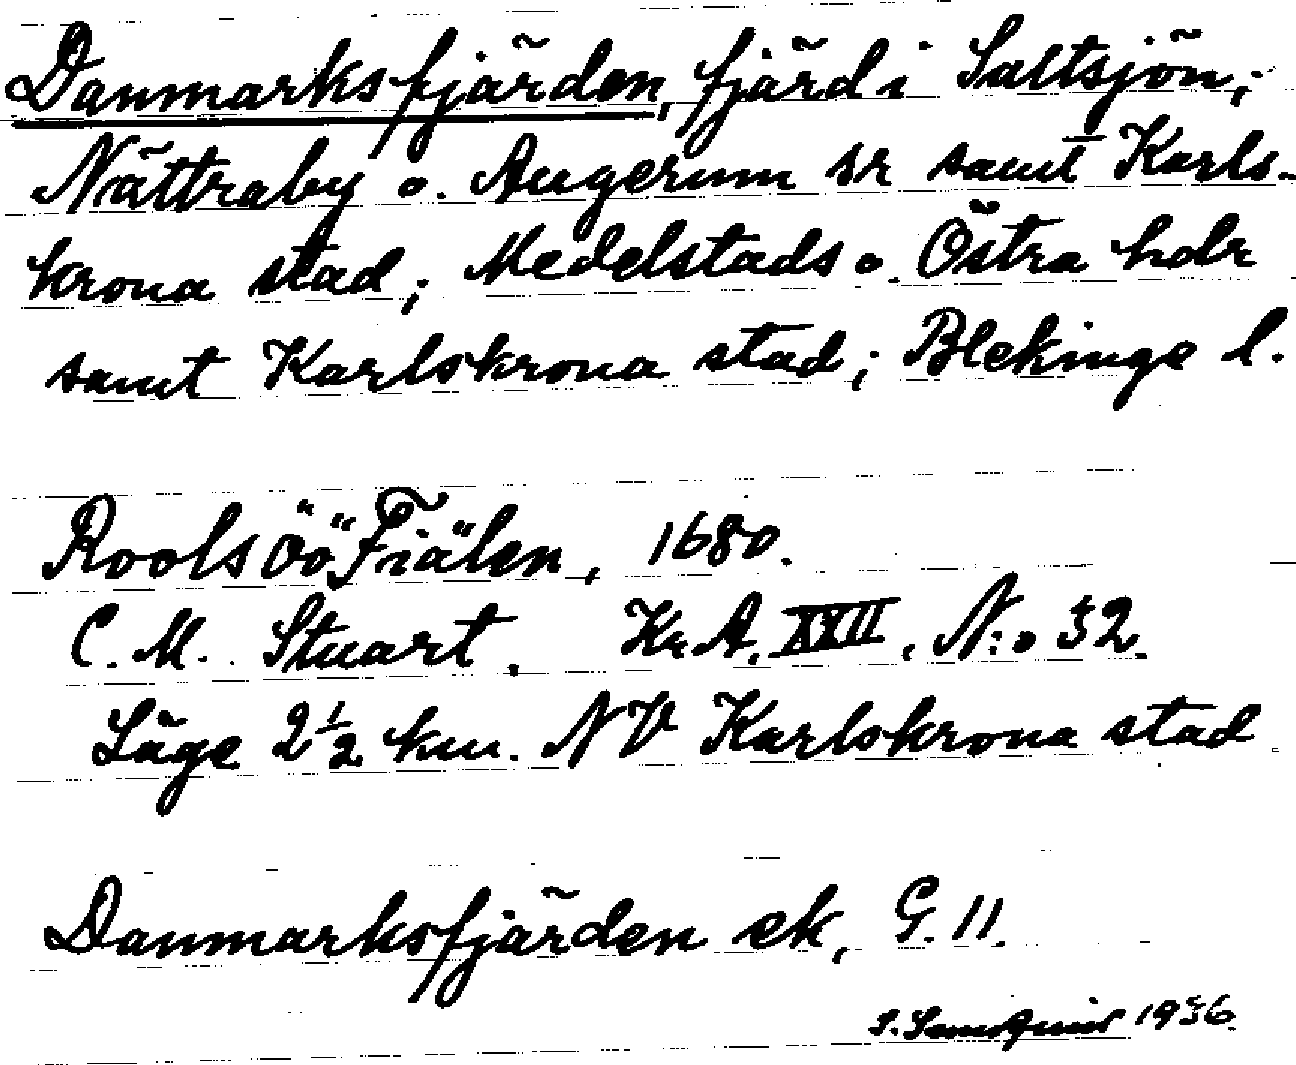 Danmarksfjärden, fjärd i Saltsjön;
Nättraby o. Augerum sr samt Karls-
krona stad; Medelstads o. Östra hdr
samt Karlskrona stad; Blekinge l.
Roolsöö Fiälen, 1680.
C. M. Stuart. Kr. A. XXII, N:o 32.
Läge 2 1/2 km. NV Karlskrona stad
Danmarksfjärden ek, G. 11.
S. 1936.